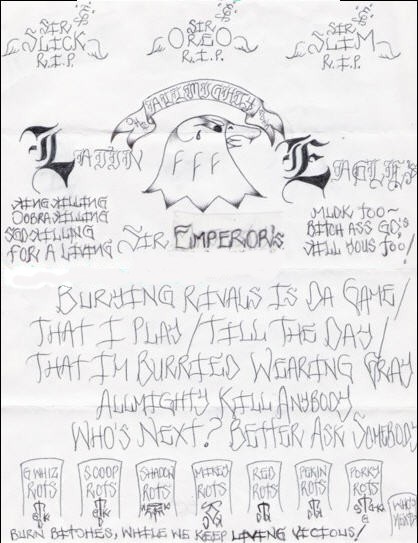 SIR SLICK R.I.P.
SIR OREO R.I.P.
SIR SLIM R.I.P.
ALLMIGHTY
LATIN EAGLE'S
FFF
KING KILLING
COBRA KILLING
SGD KILLING
FOR A LIVING
SIR EMPEROR'S
MLDK TOO~
BITCH ASS GD'S
KILL YOUS TOO!
BURYING RIVALS IS DA GAME/
THAT I PLAY/TILL THE DAY/
THAT IM BURRIED WEARING GRAY
ALLMIGHTY KILL ANYBODY
WHO'S NEXT? BETTER ASK SOMEBODY
G WHIZ ROTS
SCOOP ROTS
SHADOW ROTS
ROTS
RED ROTS
PEKIN ROTS
PORKY ROTS
WHO'S NEXT?
BURN BITCHES, WHILE WE KEEP LIVING VICIOUS!